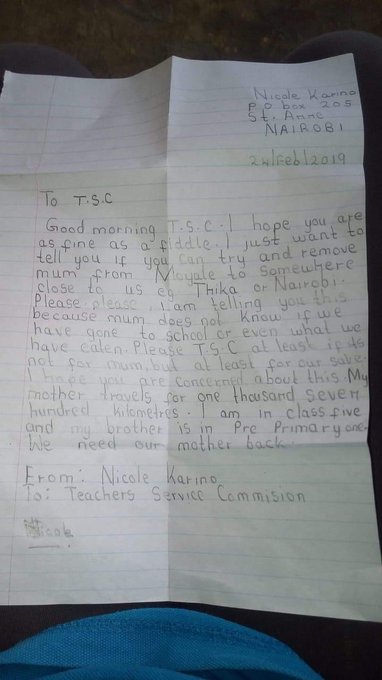 Nicole Karino
P O box 205
St. Anne
NAIROBI
24/Feb/2019
To T.S.C
Good morning T.S.C. I hope you are
as fine as a fiddle. I just want to
tell you if you can try and remove
mum from Moyale to somewhere
close to us eg Thika or Nairobi.
Please please. I am telling you this
because mum does not know if we
have gone to school or even what we
have eaten. Please T.S.C at least if its
not for mum, but at least for our sake.
I hope you are concerned about this. My
mother travels for one thousand seven
hundred kilometres. I am in class five
and my brother is in Pre Primary one.
We need our mother back.
From: Nicole Karino
To: Teachers Service Commision
Nicole